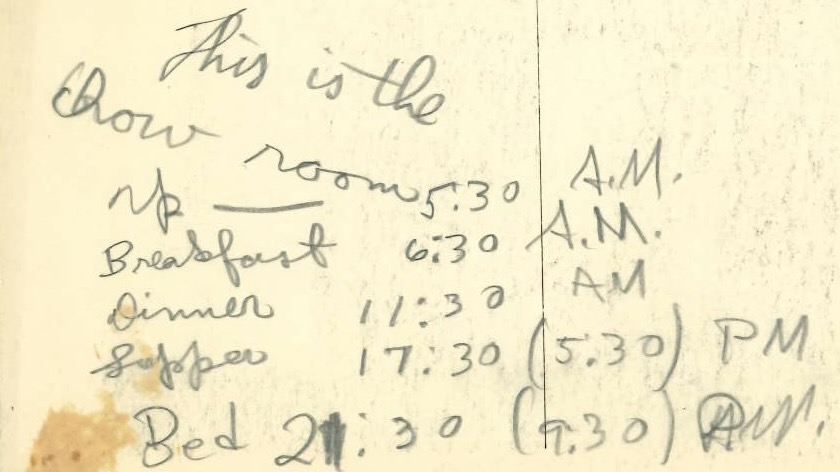 This is the
Chow room
Up — 5:30 A.M.
Breakfast 6:30 A.M.
Dinner 11:30 AM
Supper 17:30 (5:30) PM
Bed 21:30 (9:30) P.M.